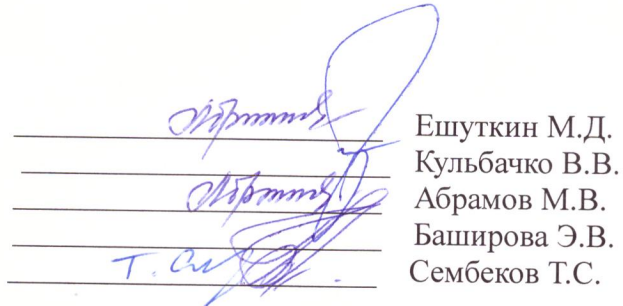 Ешуткин М.Д.
Кульбачко В.В.
Абрамов М.В.
Баширова Э.В.
Сембеков Т.С.